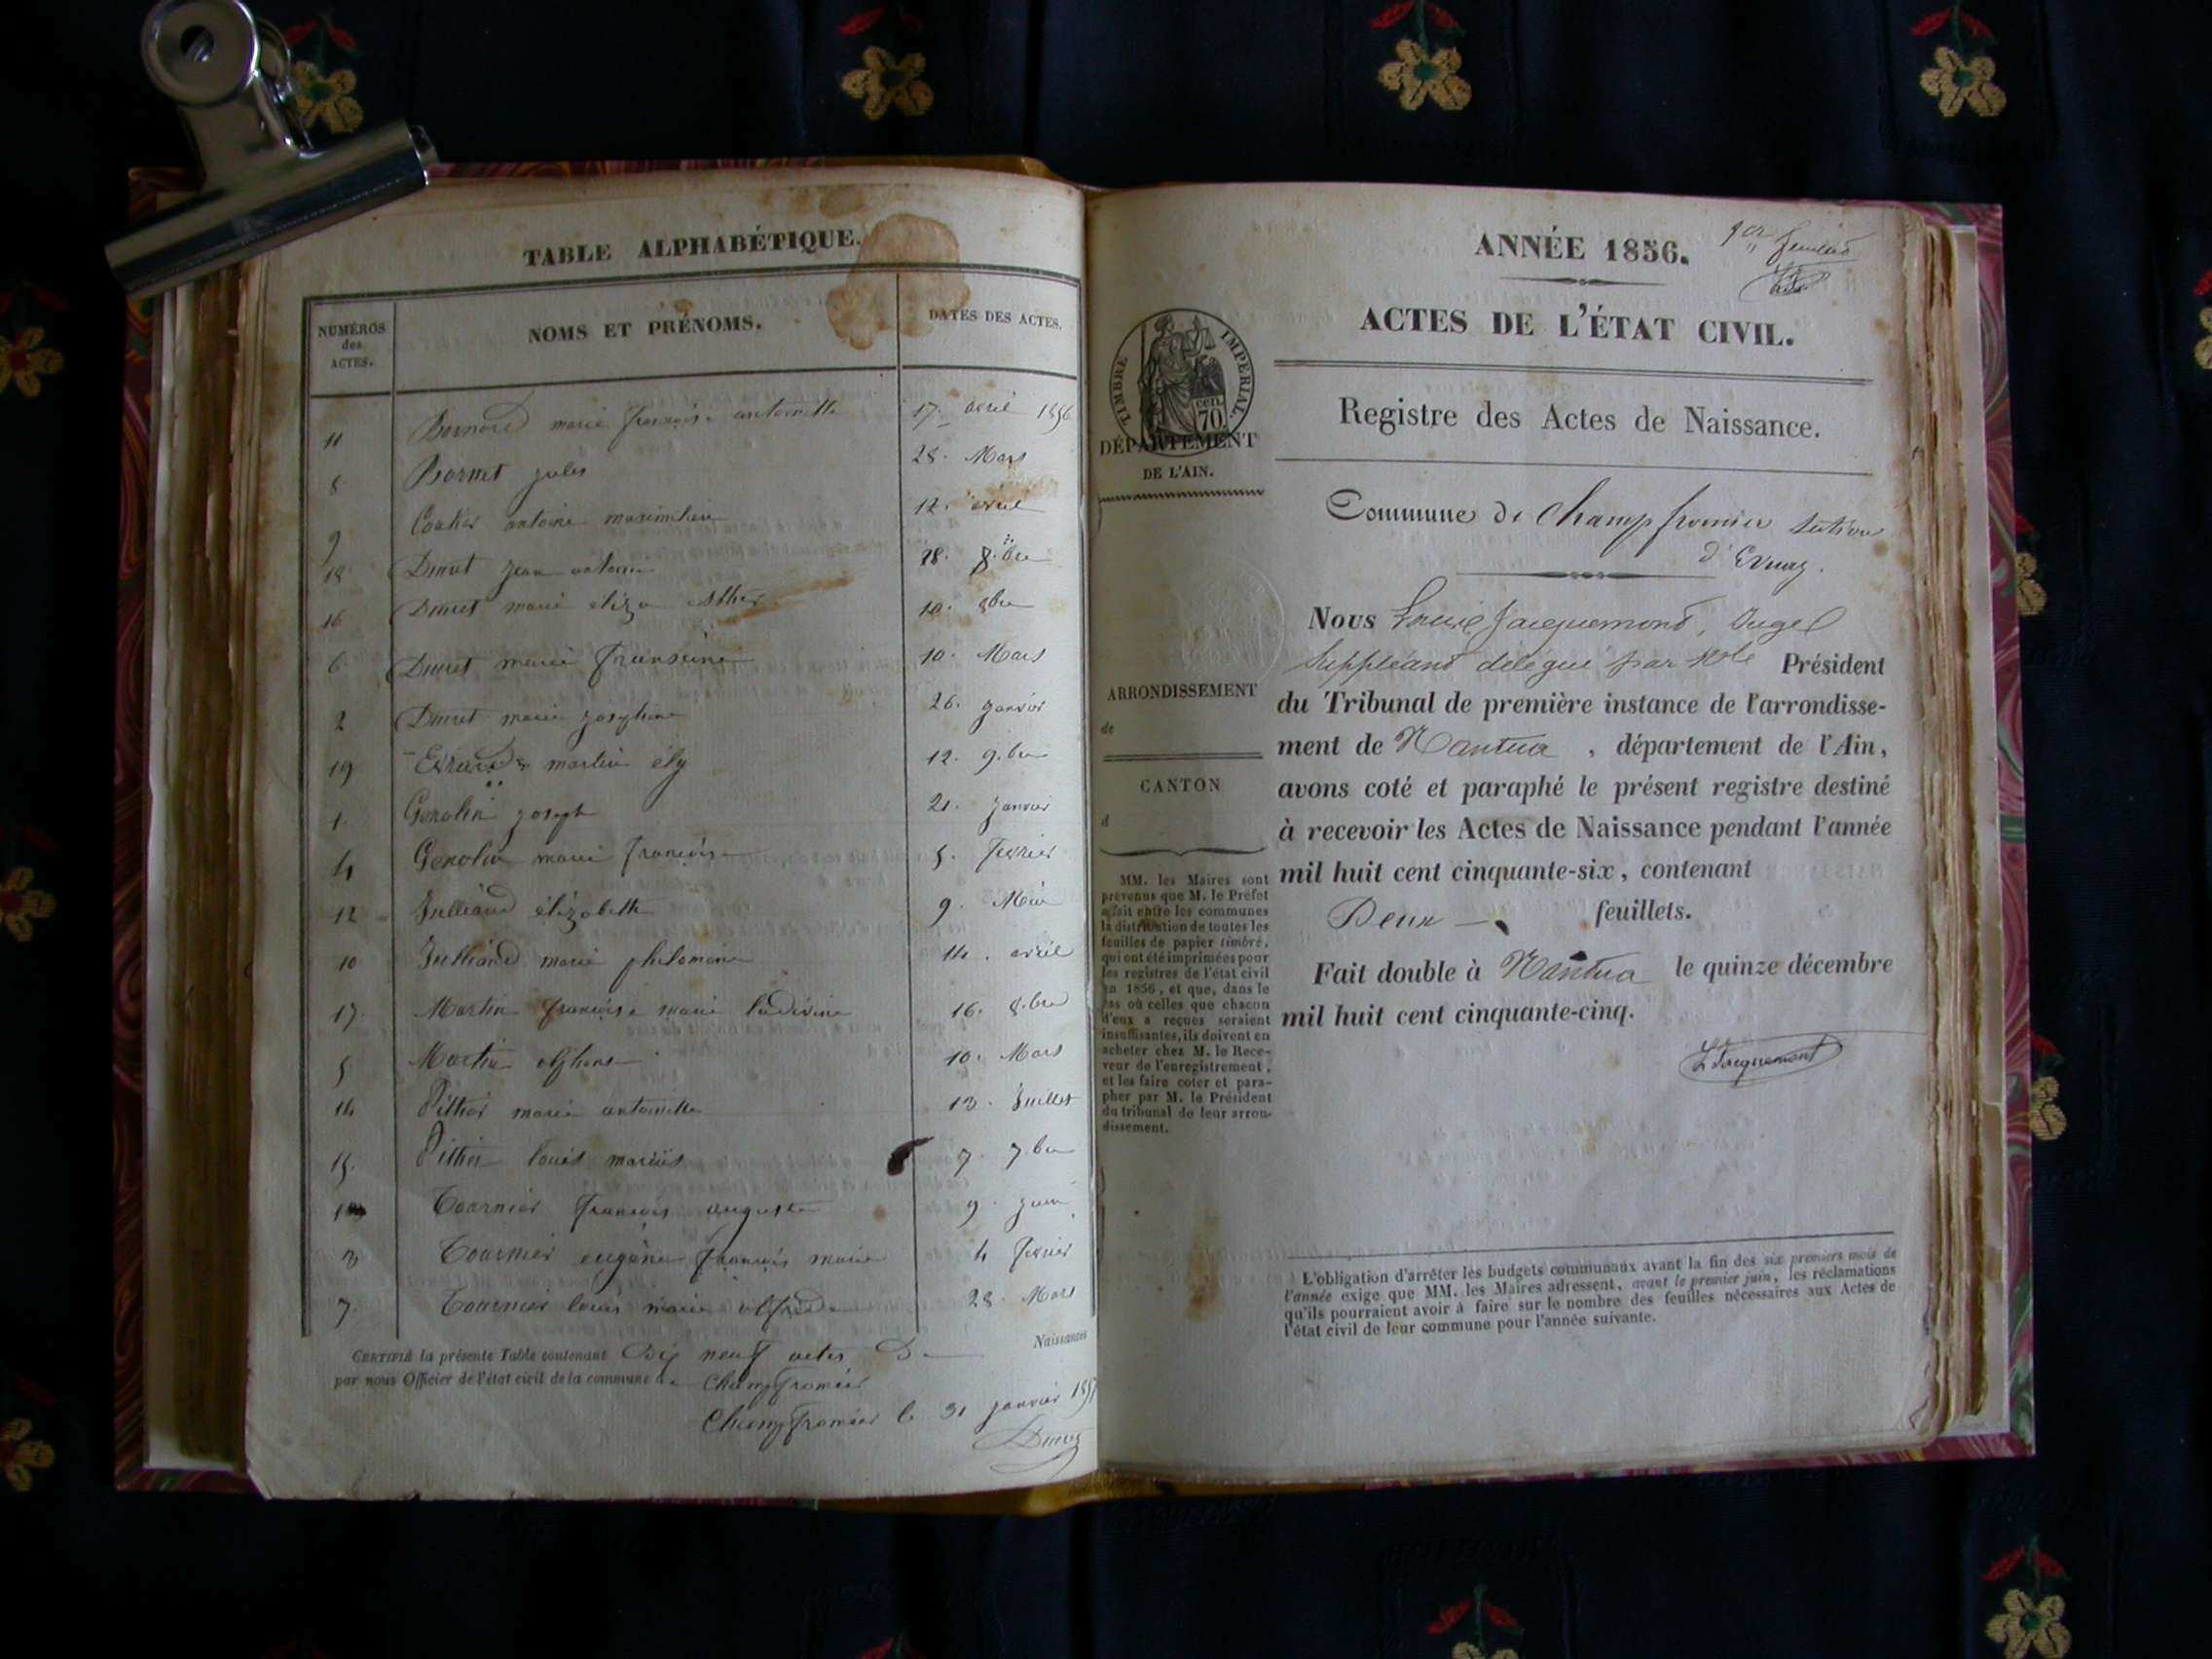 TABLE ALPHABÉTIQUE.
NUMÉROS des ACTES.
NOMS ET PRÉNOMS.
DATES DES ACTES.
11 marie françoise antoinette 17. avril 1856
8 Bornet jules 28. Mars
9 Coutier antoine maximilien 12. avril
18 Ducret jean antoine 28. 8.bre
16 Ducret marie eliza esther 10. 8bre
6 Ducret marie fransine 10. Mars
2 Ducret marie josephine 26. janvier
19 Evrard martin ély 12. 9.bre
1. Genolin joseph 21. janvier
4 Genolin marie françoise 5. fevrier
12 Julliand élizabeth 9. Mai
10 Julliand marie philomène 14. avril
17. Martin françoise marie ludivine 16. 8.bre
5 Martin alphonse 10. Mars
14 marie antoinette 13. Juillet
15. louis marius 7. 7.bre
Tournier françois auguste 9. juin
3 Tournier eugène françois marie 4 fevrier
7. Tournier louis marie alfred 28. Mars
CERTIFIÉ la présente Table contenant Dix neuf actes De Naissances
par nous Officier de l'état civil de la commune de Champfromier
Champfromier le 31 janvier 1857
Ducret
ANNÉE 1856.
1er feuillet
ACTES DE L'ÉTAT CIVIL.
TIMBRE IMPERIAL.
cen. 70
DÉPARTEMENT
DE L'AIN.
Registre des Actes de Naissance.
Commune de Champfromier section
d'Evuaz.
Nous Louis Jacquemond, Juge
Suppléant délégué par Mr le Président
du Tribunal de première instance de l'arrondisse-
ment de Nantua, département de l'Ain,
avons coté et paraphé le présent registre destiné
à recevoir les Actes de Naissance pendant l'année
mil huit cent cinquante-six, contenant
Deux feuillets.
Fait double à Nantua le quinze décembre
mil huit cent cinquante-cinq.
L Jacquemont
ARRONDISSEMENT
de
CANTON
d
MM. les Maires sont
prévenus que M. le Préfet
a fait entre les communes
la distribution de toutes les
feuilles de papier timbré,
qui ont été imprimées pour
les registres de l'état civil
en 1856, et que, dans le
cas où celles que chacun
d'eux a reçues seraient
insuffisantes, ils doivent en
acheter chez M. le Rece-
veur de l'enregistrement,
et les faire coter et para-
pher par M. le Président
du tribunal de leur arron-
dissement.
L'obligation d'arrêter les budgets communaux avant la fin des six premiers mois de
l'année exige que MM. les Maires adressent, avant le premier juin, les réclamations
qu'ils pourraient avoir à faire sur le nombre des feuilles nécessaires aux Actes de
l'état civil de leur commune pour l'année suivante.